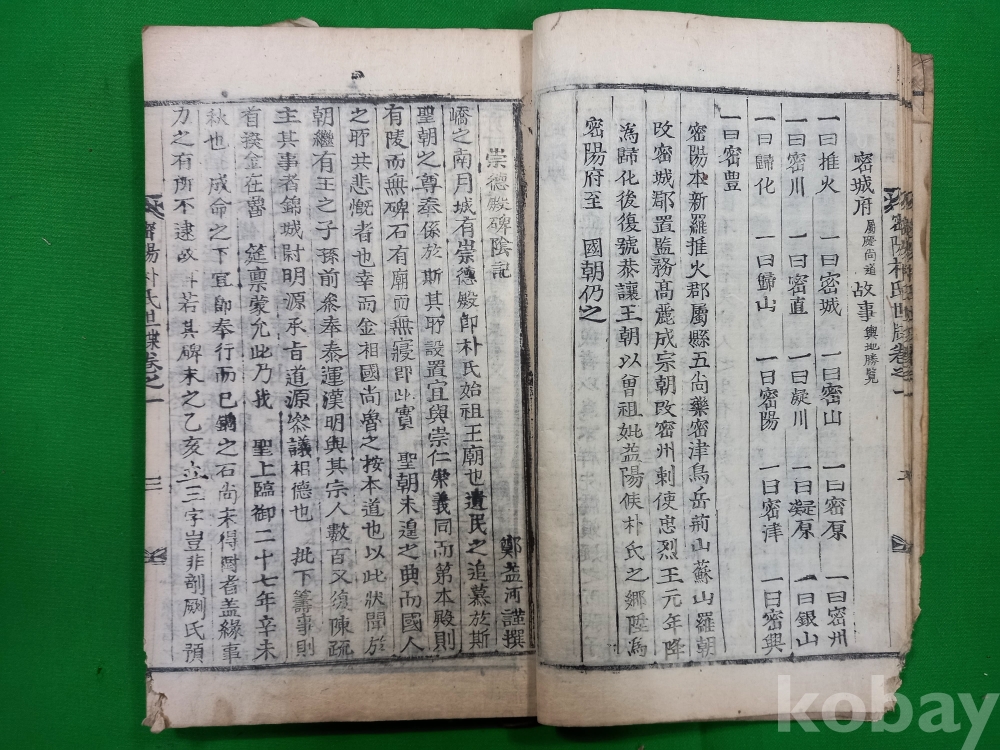 密城府 屬慶尚道 故事 輿地勝覧
一曰推火 一曰密城 一曰密山 一曰密原 一曰密州
一曰密川 一曰密直 一曰凝川 一曰凝原 一曰銀山
一曰歸化 一曰歸山 一曰密陽 一曰密津 一曰密興
一曰密豊
密陽本新羅推火郡屬縣五尚藥密津烏岳荊山蘇山羅朝
改密城郡置監務髙麗成宗朝改密州刺使忠烈王元年降
為歸化後復號恭讓王朝以曾祖妣益陽侯朴氏之郷陞為
密陽府至 國朝仍之
密陽朴氏世牒卷之一
崇德殿碑陰記
鄭益河謹撰
嶠之南月城有崇德殿即朴氏始祖王廟也遺民之追慕於斯
聖朝之尊奉係於斯其所設置宜與崇仁崇義同而第本殿則
有陵而無碑石有廟而無寢郎此實 聖朝未遑之典而國人
之所共悲慨者也幸而金相國尚魯之按本道也以此狀聞於
朝繼有王之子孫前叅奉泰運漢明與其宗人數百又復陳疏
主其事者錦城尉明源承旨道源叅議相德也 批下籌事則
首揆金在魯 筵禀蒙允此乃我 聖上臨御二十七年辛未
秋也 成命之下宜卽奉行而已鐫之石尚未得竪者盖緣事
力之有所不逮故 若其碑末之乙亥立三字豈非剞劂氏預
密陽朴氏世牒卷之一 二
kobay